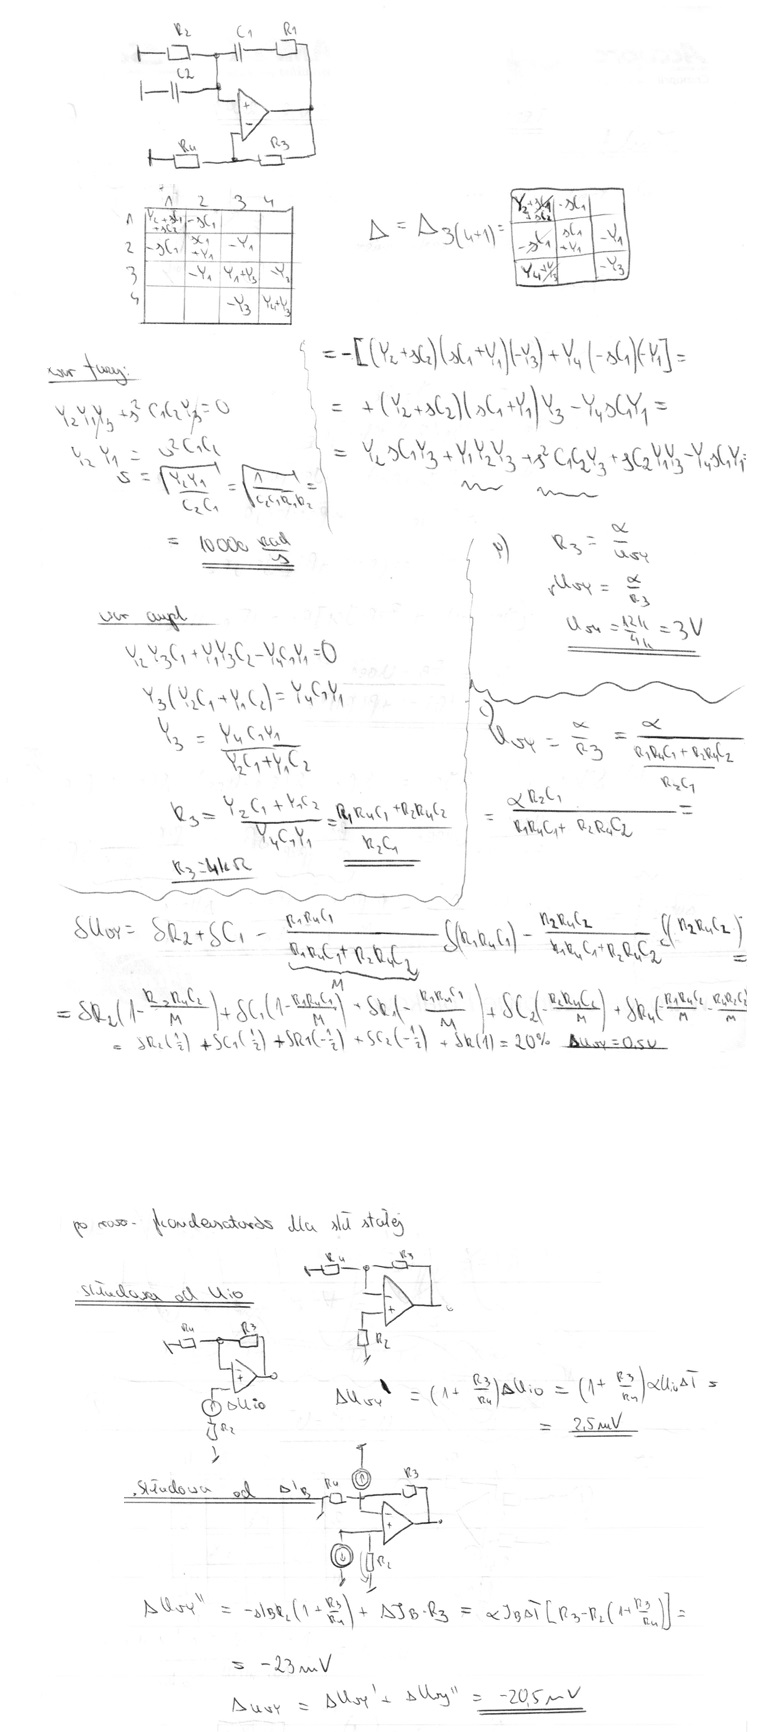 R2 C1 R1
C2
+
-
R4 R3
1 2 3 4
1 Y2+sC1+sC2 -sC1
2 -sC1 sC1+Y1 -Y1
3 -Y1 Y1+Y3 -Y3
4 -Y3 Y4+Y3
Δ = Δ3(4+1) =
Y2+sC1+sC2 -sC1
-sC1 sC1+Y1 -Y1
Y4+Y3 -Y3
= -[(Y2+sC2)(sC1+Y1)(-Y3)+Y4(-sC1)(-Y1)] =
= +(Y2+sC2)(sC1+Y1)Y3 - Y4sC1Y1 =
= Y2sC1Y3 + Y1Y2Y3 + s²C1C2Y3 + sC2Y1Y3 - Y4sC1Y1
war fazy:
Y2Y1Y3 + s²C1C2Y3 = 0
Y2Y1 = s²C1C2
s = √(Y2Y1/C2C1) = √(1/C2C1R1R2) =
= 10000 rad/s
war ampl
Y2Y3C1 + Y1Y3C2 - Y4C1Y1 = 0
Y3(Y2C1 + Y1C2) = Y4C1Y1
Y3 = Y4C1Y1/(Y2C1+Y1C2)
R3 = (Y2C1+Y1C2)/(Y4C1Y1) = (R1R4C1+R2R4C2)/(R2C1)
R3 = 4kΩ
R3 = α/uwy
Uwy = α/R3
Uwy = 12k/4k = 3V
Uwy = α/R3 = α/((R1R4C1+R2R4C2)/(R2C1))
= αR2C1/(R1R4C1+R2R4C2) =
δUwy = δR2+δC1 - R1R4C1/(R1R4C1+R2R4C2) δ(R1R4C1) - R2R4C2/(R1R4C1+R2R4C2) δ(R2R4C2) =
M
= δR2(1-R2R4C2/M) + δC1(1-R1R4C1/M) + δR1(-R1R4C1/M) + δC2(-R2R4C2/M) + δR4(-R1R4C1/M - R2R4C2/M
= δR2(1/2) + δC1(1/2) + δR1(-1/2) + δC2(-1/2) + δR(1) = 20% ΔUwy = 0,5V
po rozw. kondensatorów dla skł stałej
R4 R3
-
+
R2
Składowa od Uio
R4 R3
-
+
ΔUio
R2
ΔUwy' = (1+R3/R4)ΔUio = (1+R3/R4)αUioΔT =
= 2,5mV
Składowa od ΔIB
R4 R3
-
+
R2
ΔUwy'' = -ΔIBR2(1+R3/R4) + ΔIB·R3 = αIBΔT[R3-R2(1+R3/R4)] =
= -23mV
ΔUwy = ΔUwy' + ΔUwy'' = -20,5mV